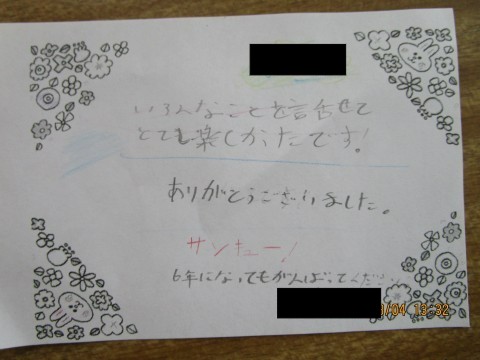 いろんなことを話せて
とても楽しかったです!
ありがとうございました。
サンキュー!
6年になってもがんばってくだ
/04 13:32